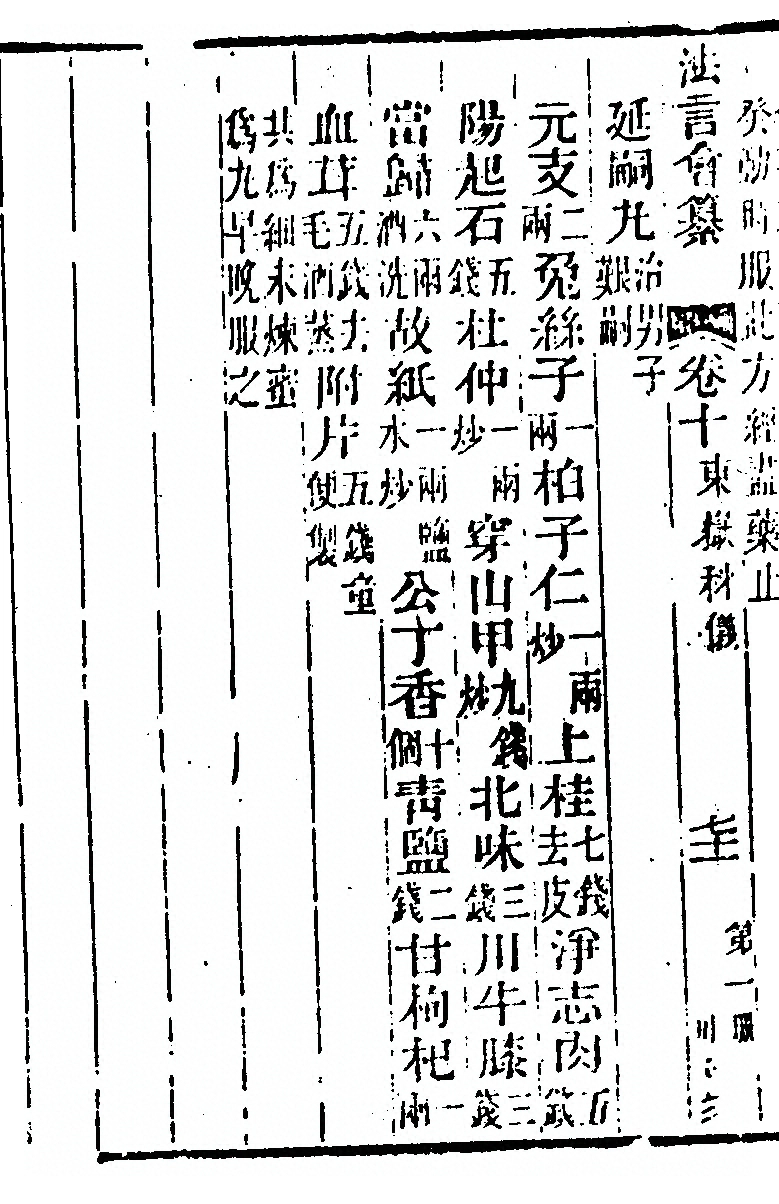 癸動時服此方經盡藥止
法言會纂 卷十 東嶽科儀 第一
延嗣丸治男子艱嗣
元支二兩兔絲子一兩柏子仁一兩炒上桂七錢去皮淨志肉五錢
陽起石五錢杜仲一兩炒穿山甲九錢炒北味三錢川牛膝三錢
當歸六兩酒洗故紙一兩鹽水炒公丁香十個青鹽二錢甘枸杞一兩
血茸五錢去毛酒蒸附片五錢童便製
共爲細末煉蜜
爲丸早晚服之